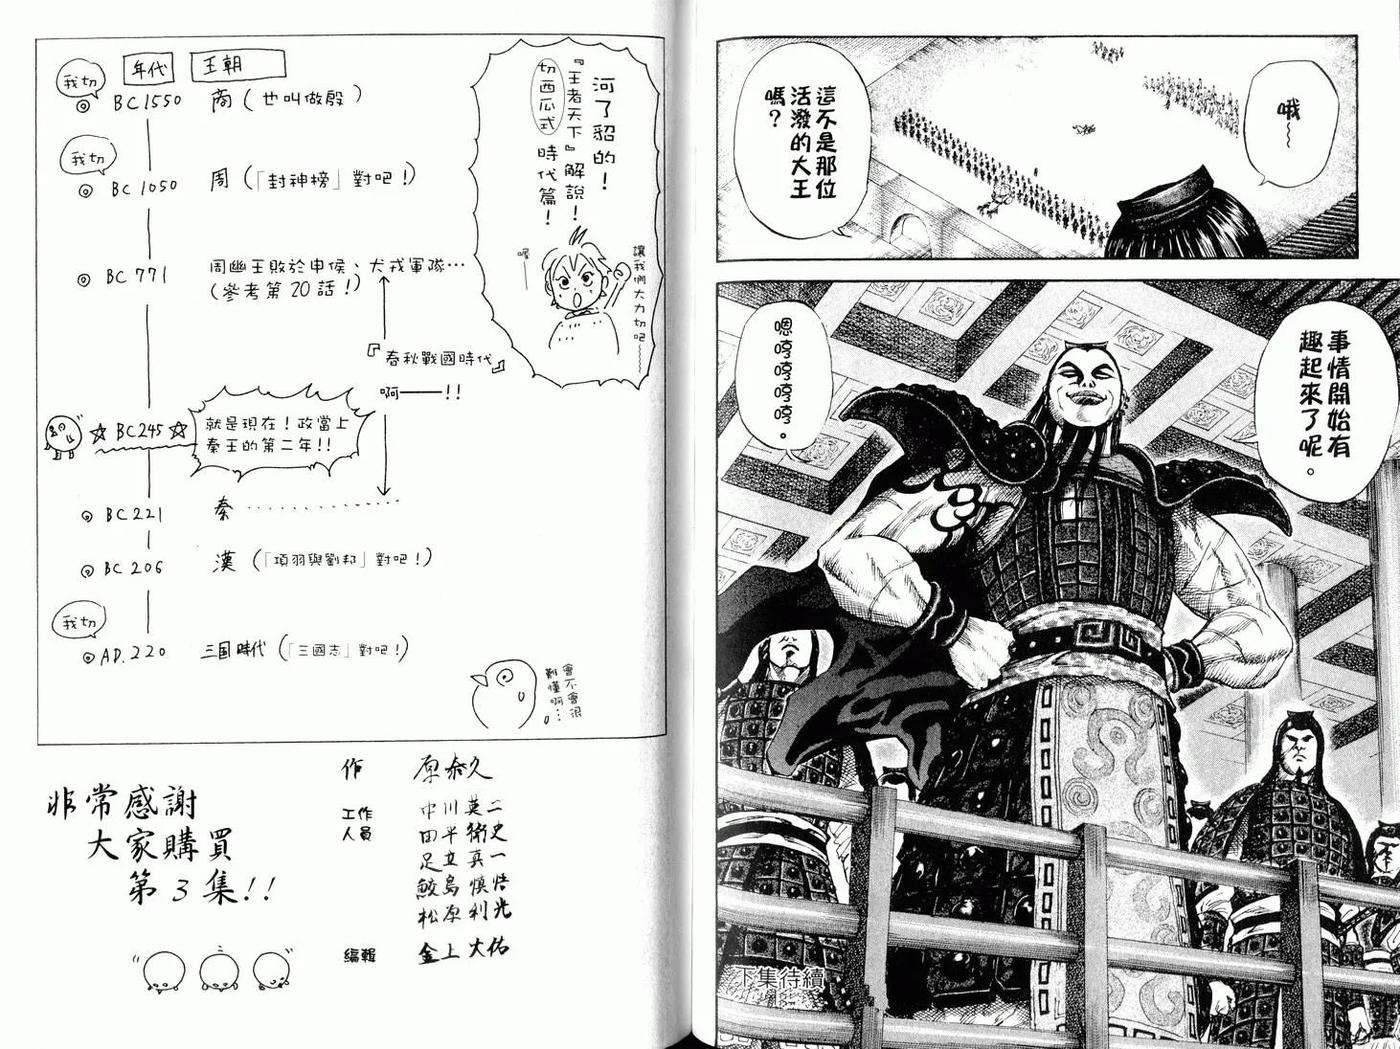 哦～
這不是那位
活潑的大王
嗎？
事情開始有
趣起來了呢。
嗯哼哼哼哼。
下集待續
河了貂的！
『王者天下』解說！
切西瓜式時代篇！
讓我們大力切吧～
喔——
年代 王朝
我切
BC 1550 商（也叫做殷）
我切
BC 1050 周（「封神榜」對吧！）
BC 771 周幽王敗於申侯、犬戎軍隊…
（參考第20話！）
『春秋戰國時代』
啊——!!
☆BC245☆ 就是現在！政當上
秦王的第二年!!
BC 221 秦
BC 206 漢（「項羽與劉邦」對吧！）
我切
AD. 220 三国時代（「三國志」對吧！）
會不會很
難懂啊…
非常感謝
大家購買
第3集!!
作 原泰久
工作
人員
中川英二
田平衛史
足立真一
鮫島慎悟
松原利光
編輯 金上大佑